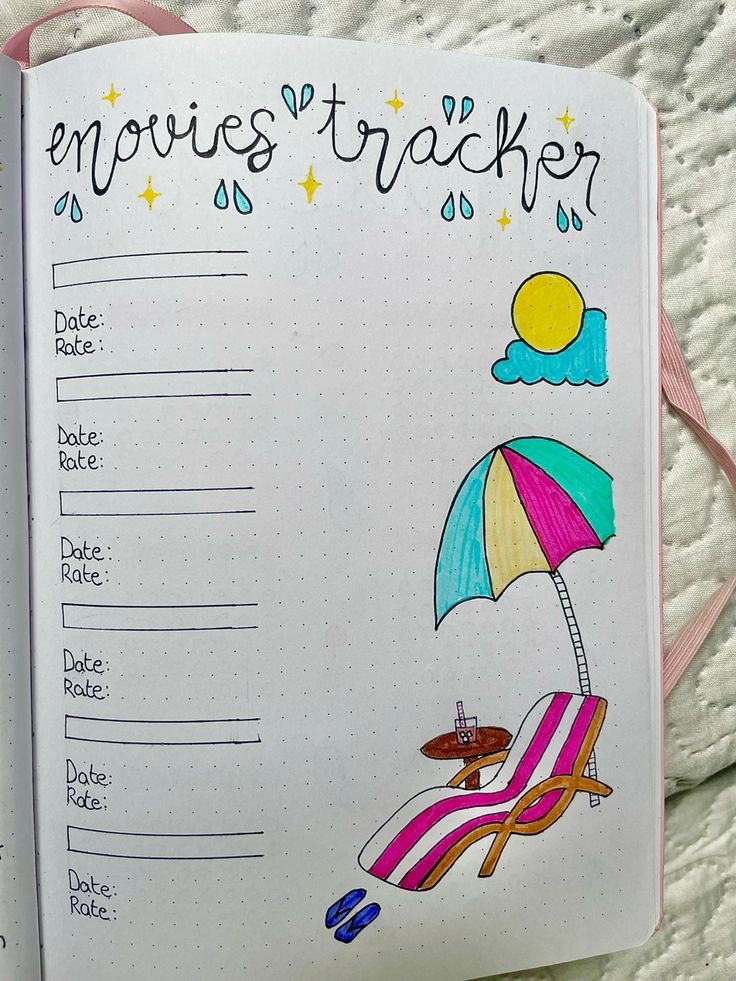 movies tracker
Date:
Rate:
Date:
Rate:
Date:
Rate:
Date:
Rate:
Date:
Rate:
Date:
Rate: